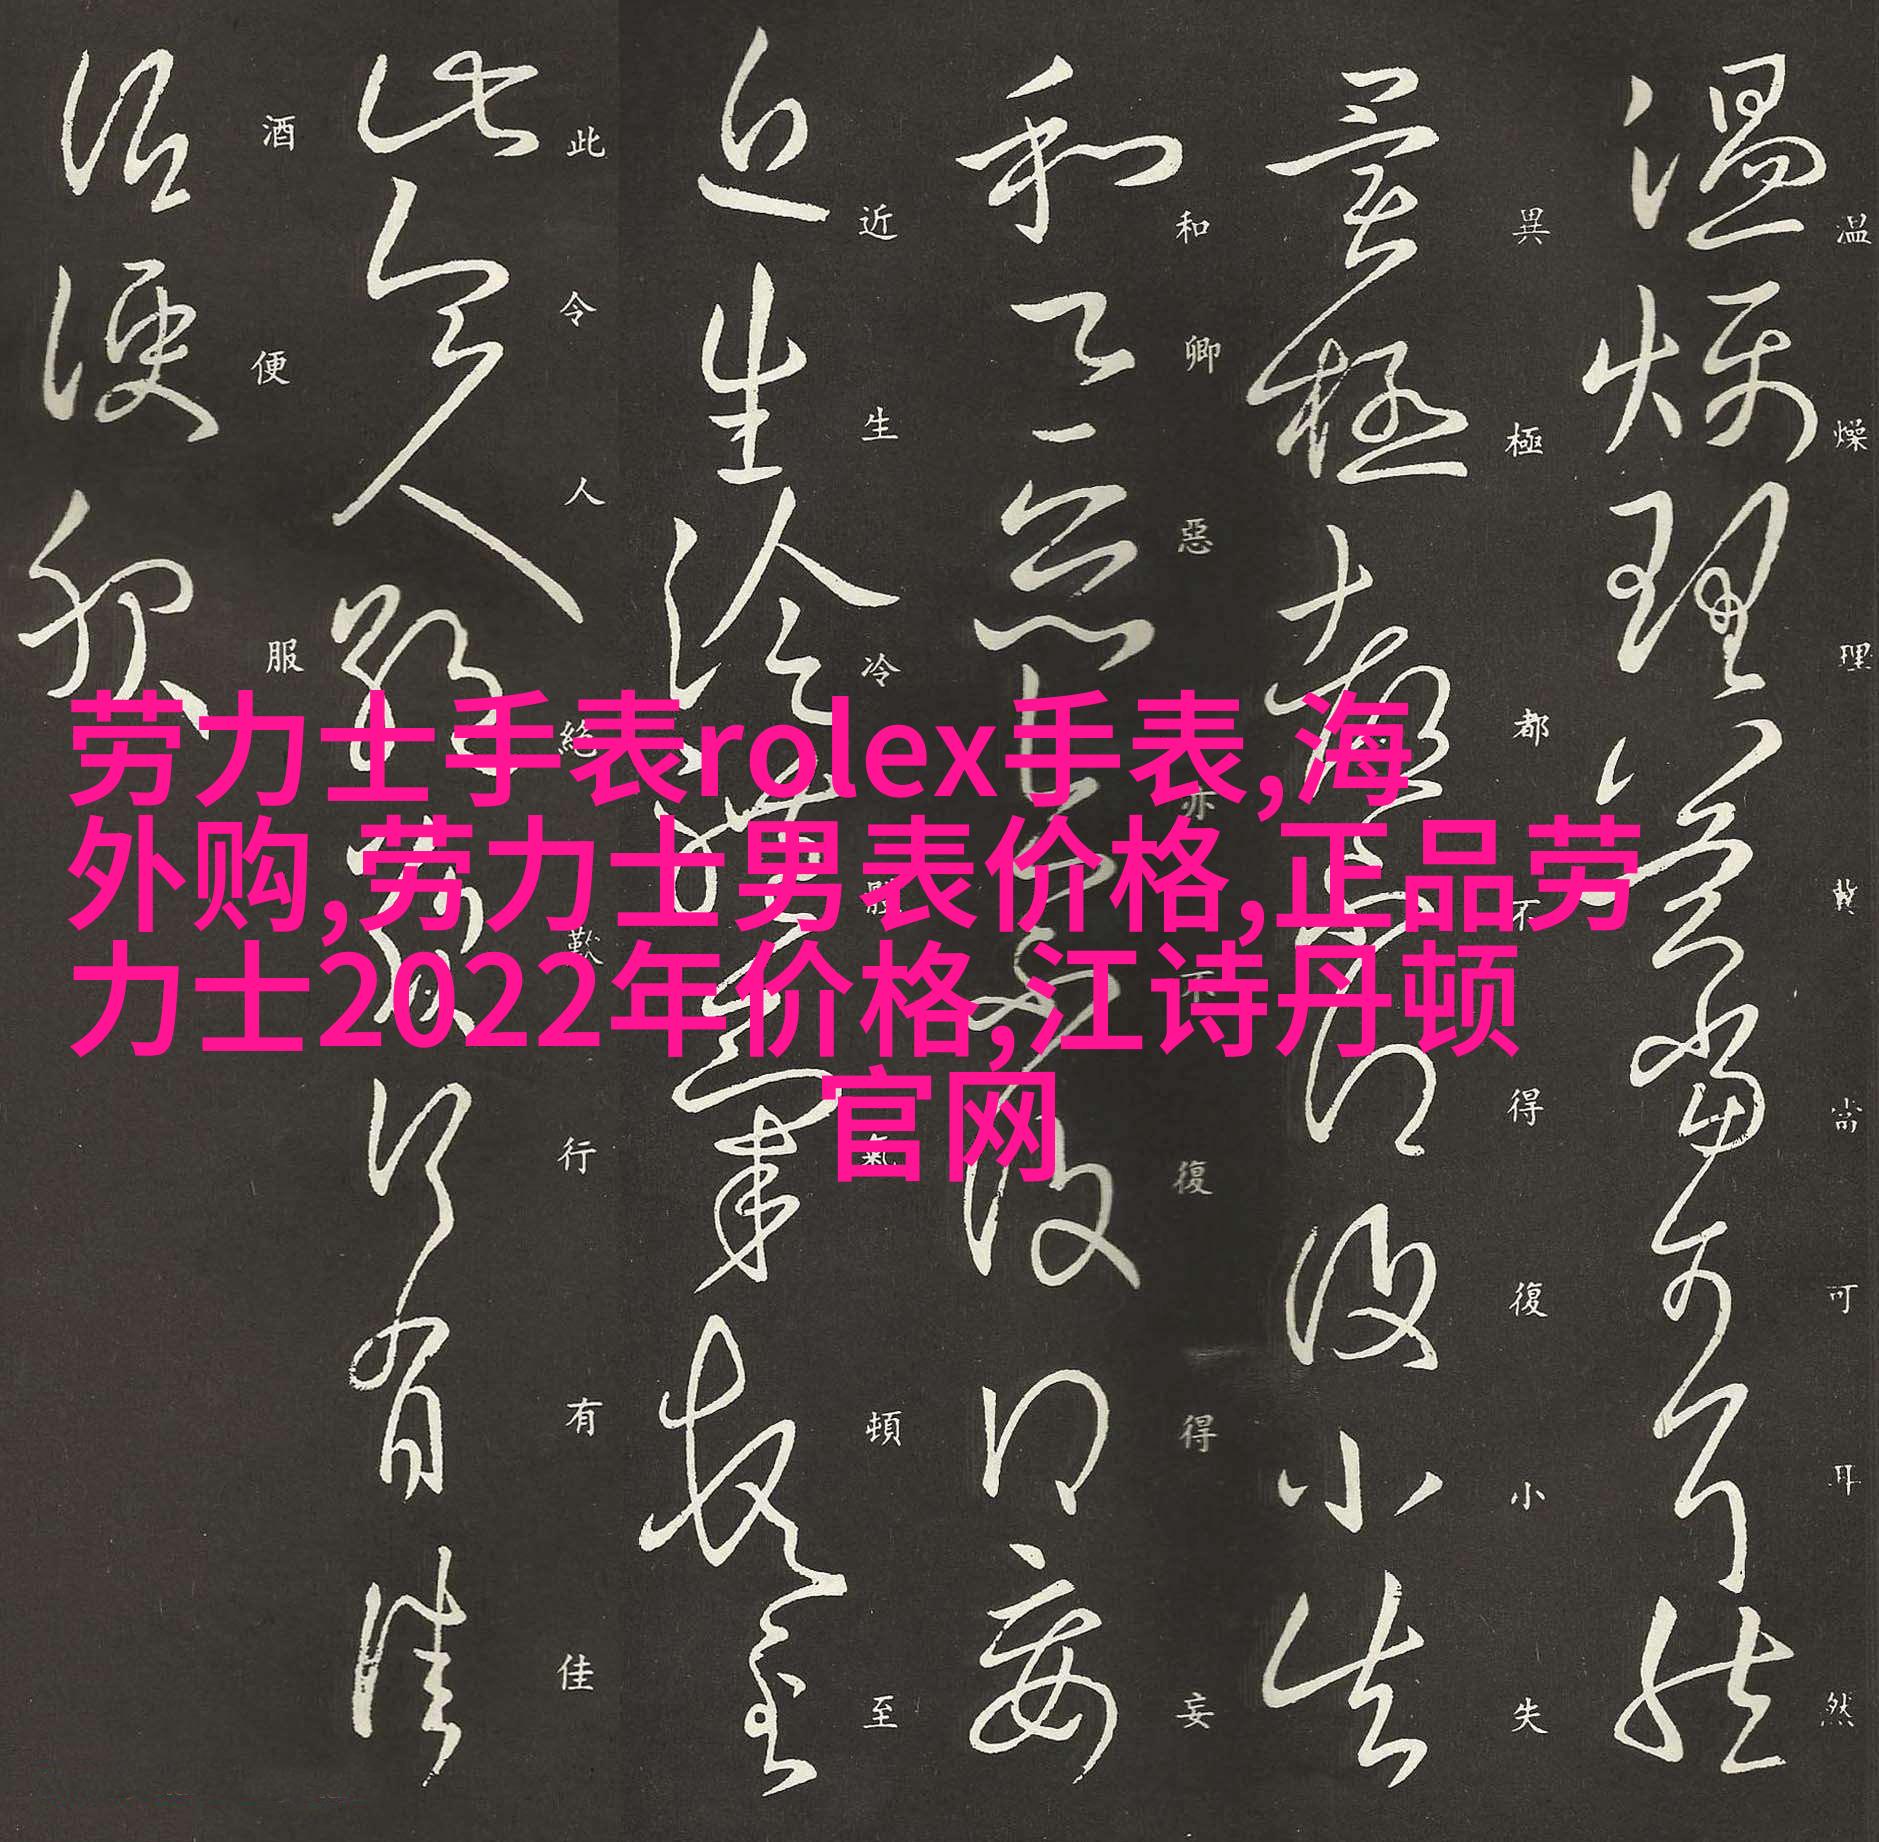 劳力士手表rolex手表,海
外购,劳力士男表价格,正品劳
力士2022年价格,江诗丹顿
官网
温燥理冀當可耳然
異極都不得復小失
和卿惡亦不復得妄
近生冷體氣頓至
此令人絶歎行有佳
酒便服